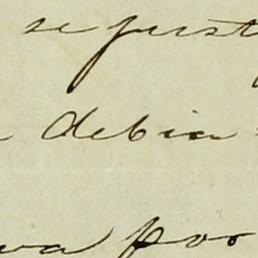 se just
debia
va por